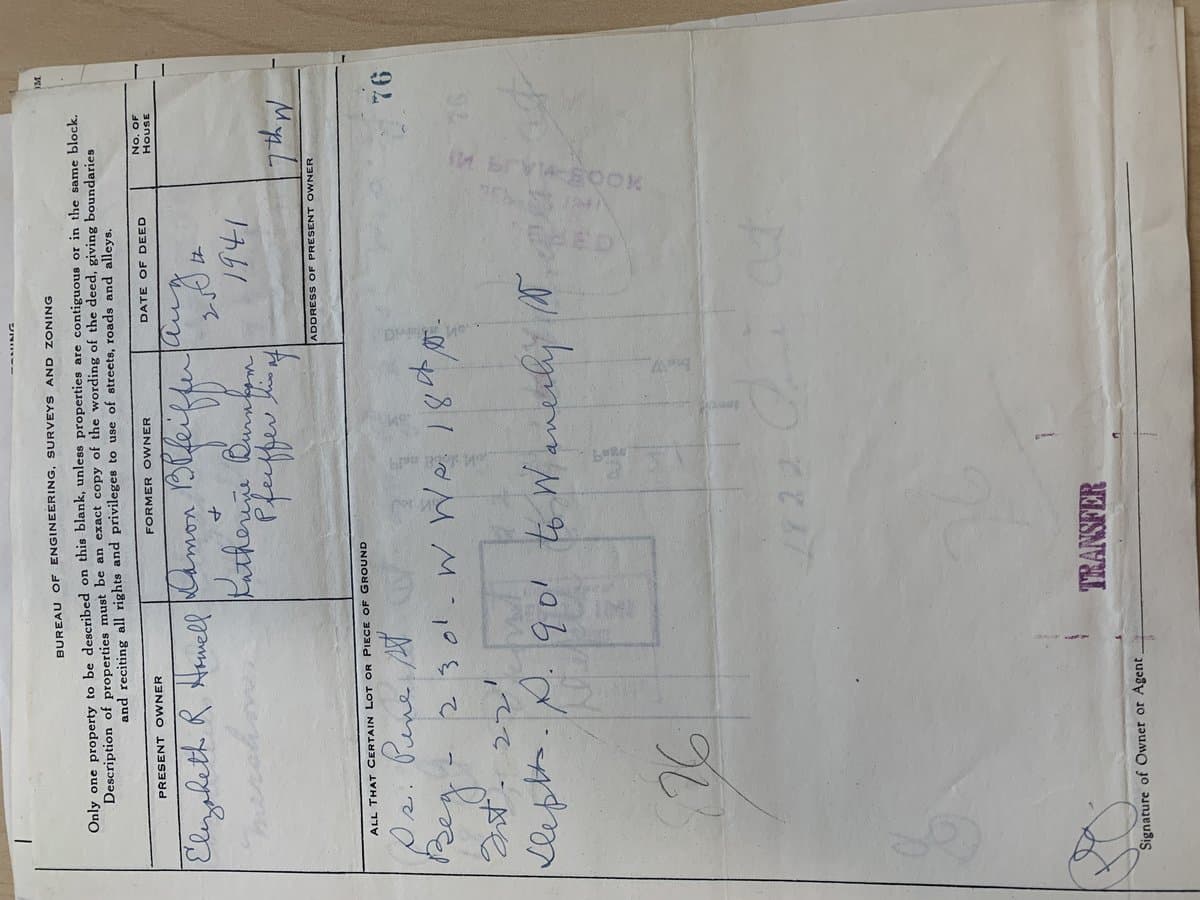 BUREAU OF ENGINEERING, SURVEYS AND ZONING
Only one property to be described on this blank, unless properties are contiguous or in the same block.
Description of properties must be an exact copy of the wording of the deed, giving boundaries
and reciting all rights and privileges to use of streets, roads and alleys.
PRESENT OWNER
FORMER OWNER
DATE OF DEED
NO. OF HOUSE
Elizabeth R Howell
Damon B Pfeiffer
+
Katherine Burnham
Pfeiffer his wf
Aug
25th
1941
7th W
ADDRESS OF PRESENT OWNER
ALL THAT CERTAIN LOT OR PIECE OF GROUND
76
Ss: Pine St
Beg - 230' - W Ws 18th St.
Frt - 22'
Depth - S. 90' to Waverly St
E76
TRANSFER
Signature of Owner or Agent